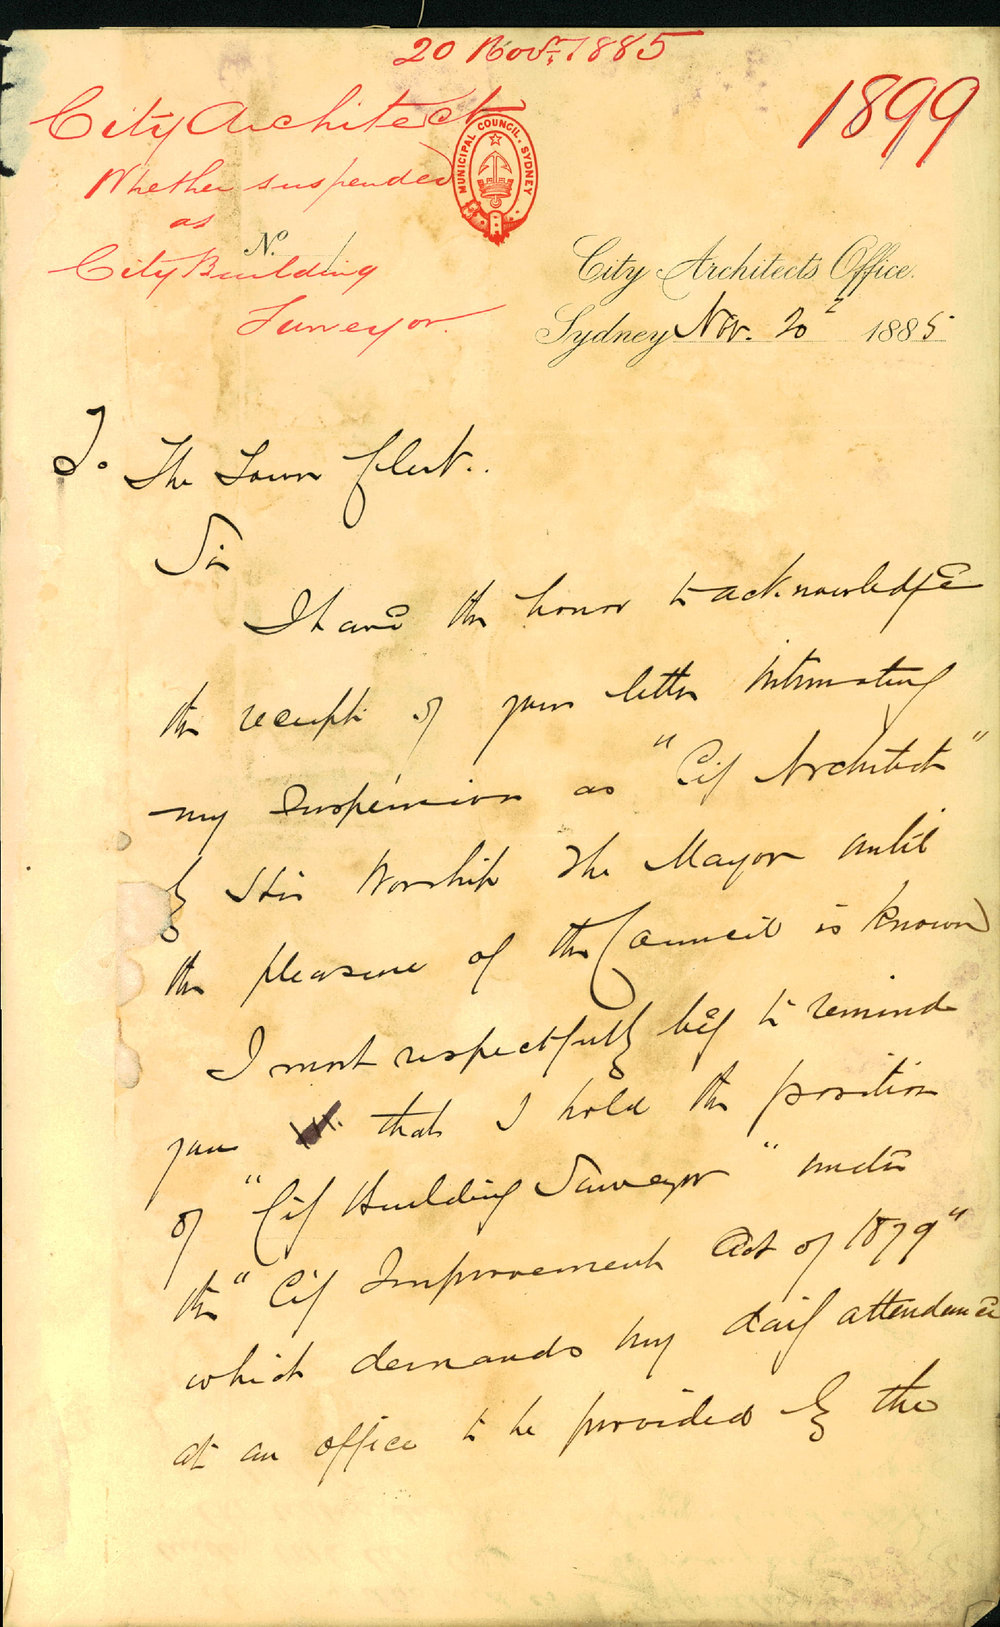 20 Novr. 1885
1899
City Architect
Whether suspended
as
City Building
Surveyor.
MUNICIPAL COUNCIL. SYDNEY
No.
City Architects Office.
Sydney Nov. 20th 1885
To The Town Clerk.
Sir
I have the honor to acknowledge
the receipt of your letter intimating
my suspension as "City Architect"
by His Worship The Mayor until
the pleasure of the Council is known
I most respectfully beg to remind
you that I hold the position
of "City Building Surveyor" under
the "City Improvement Act of 1879"
which demands my daily attendance
at an office to be provided by the